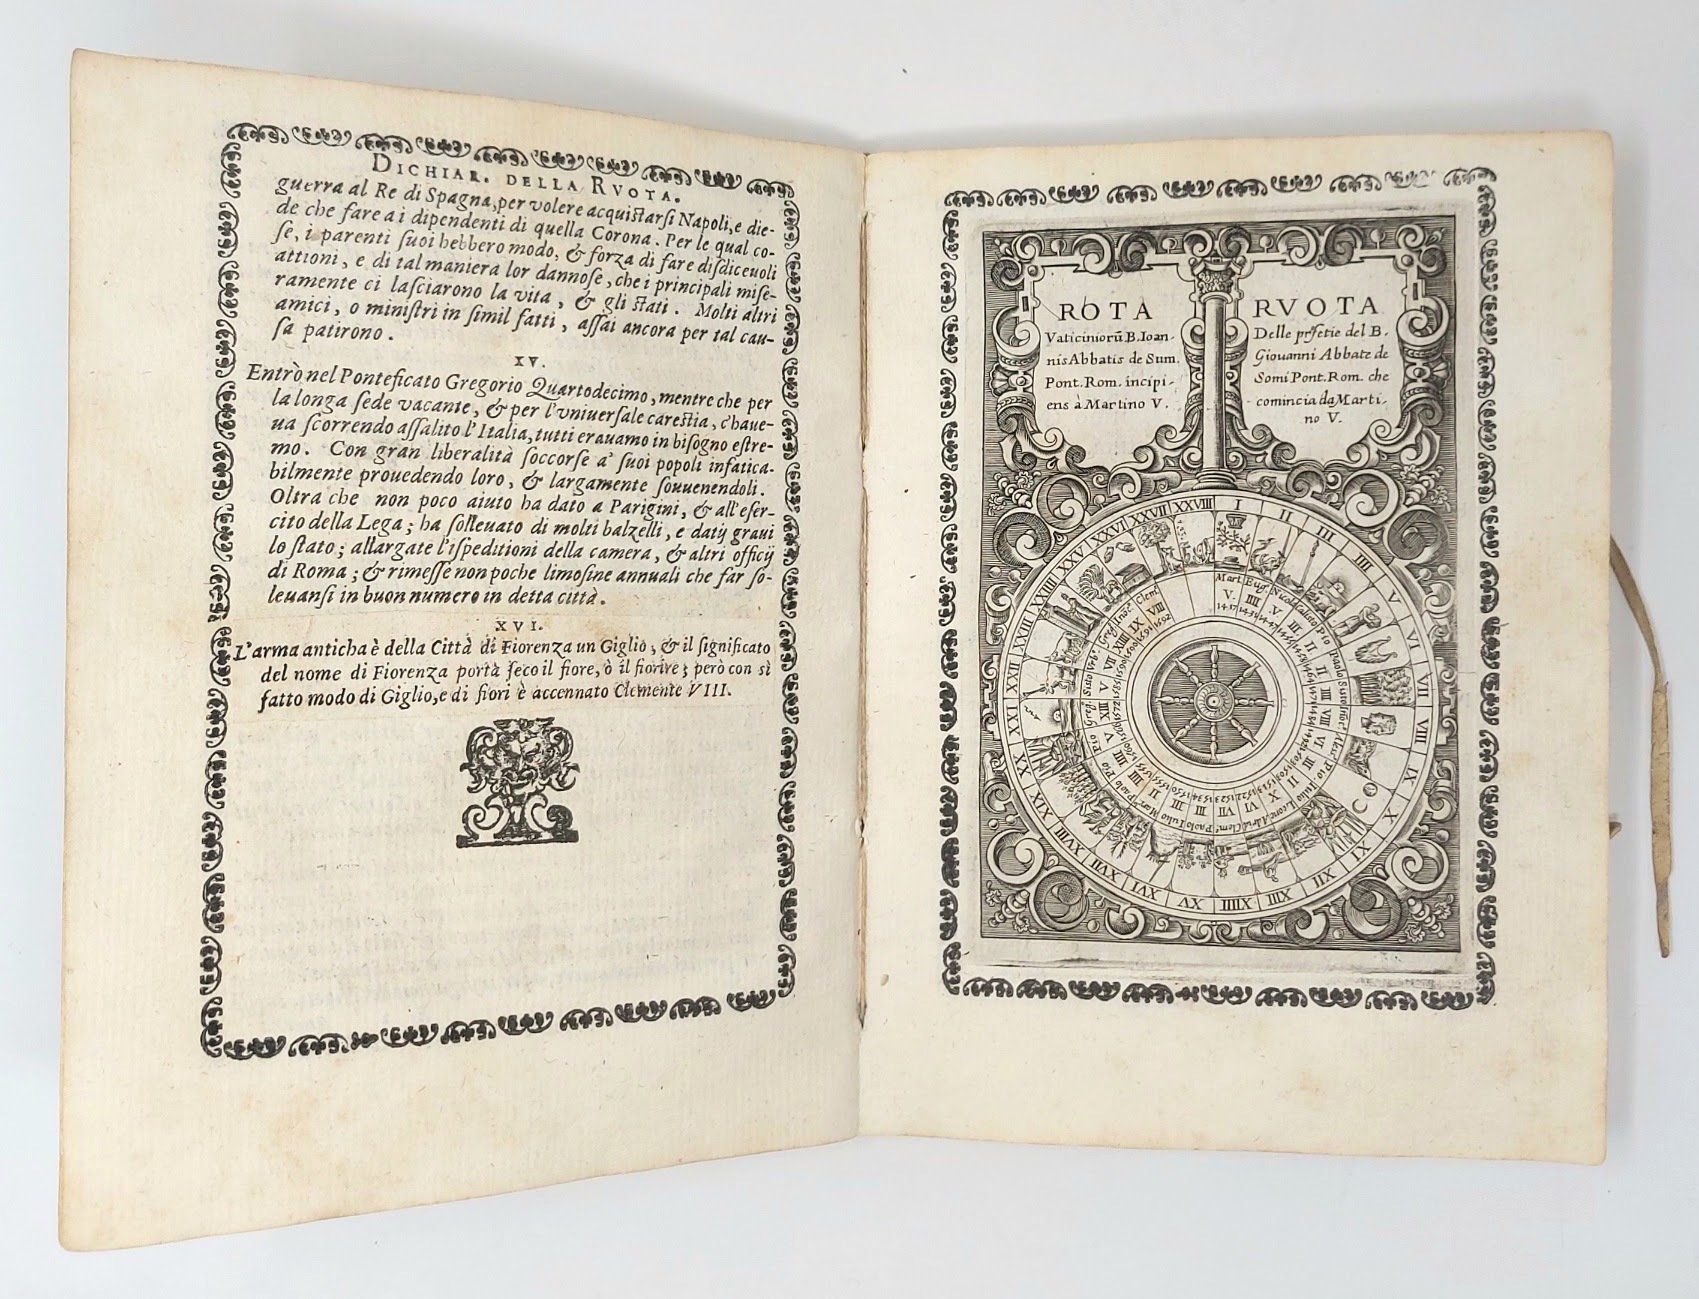 DICHIAR. DELLA RVOTA.
guerra al Re di Spagna, per volere acquistarsi Napoli, e die-
de che fare a i dipendenti di quella Corona. Per le qual co-
se, i parenti suoi hebbero modo, & forza di fare disdiceuoli
attioni, e di tal maniera lor dannose, che i principali mise-
ramente ci lasciarono la vita, & gli stati. Molti altri
amici, o ministri in simil fatti, assai ancora per tal cau-
sa patirono.
XV.
Entrò nel Ponteficato Gregorio Quartodecimo, mentre che per
la longa sede vacante, & per l'vniuersale carestia, c'haue-
ua scorrendo assalito l'Italia, tutti erauamo in bisogno estre-
mo. Con gran liberalità soccorse a' suoi popoli infatica-
bilmente prouedendo loro, & largamente souuenendoli.
Oltra che non poco aiuto ha dato a Parigini, & all'eser-
cito della Lega; ha solleuato di molti balzelli, e datij graui
lo stato; allargate l'ispeditioni della camera, & altri officij
di Roma; & rimesse non poche limosine annuali che far so-
leuansi in buon numero in detta città.
XVI.
L'arma anticha è della Città di Fiorenza un Giglio, & il significato
del nome di Fiorenza porta seco il fiore, ò il fiorire; però con sì
fatto modo di Giglio, e di fiori è accennato Clemente VIII.
ROTA
Vaticiniorũ B. Ioan-
nis Abbatis de Sum.
Pont. Rom. incipi-
ens à Martino V.
RVOTA
Delle prfetie del B.
Giovanni Abbate de
Somi Pont. Rom. che
comincia da Marti-
no V.
I II III IIII V VI VII VIII IX X XI XII XIII XIIII XV XVI XVII XVIII XIX XX XXI XXII XXIII XXIIII XXV XXVI XXVII XXVIII
Mart. V.
Eug. IIII 1431
Nicola V 1447
Calisto III
Pio II
Paolo II
Sisto IIII 1471
Inoc. VIII
Ales. VI
Pio III
Iulio II
Leone X
Adri. VI
Clem. VII
Paolo III
Iulio III
Mar. II
Paolo IIII
Pio IIII
Pio V
Greg. XIII 1572
Sisto V 1585
Greg. XIIII
Inoc. IX 1591
Clem. VIII 1592